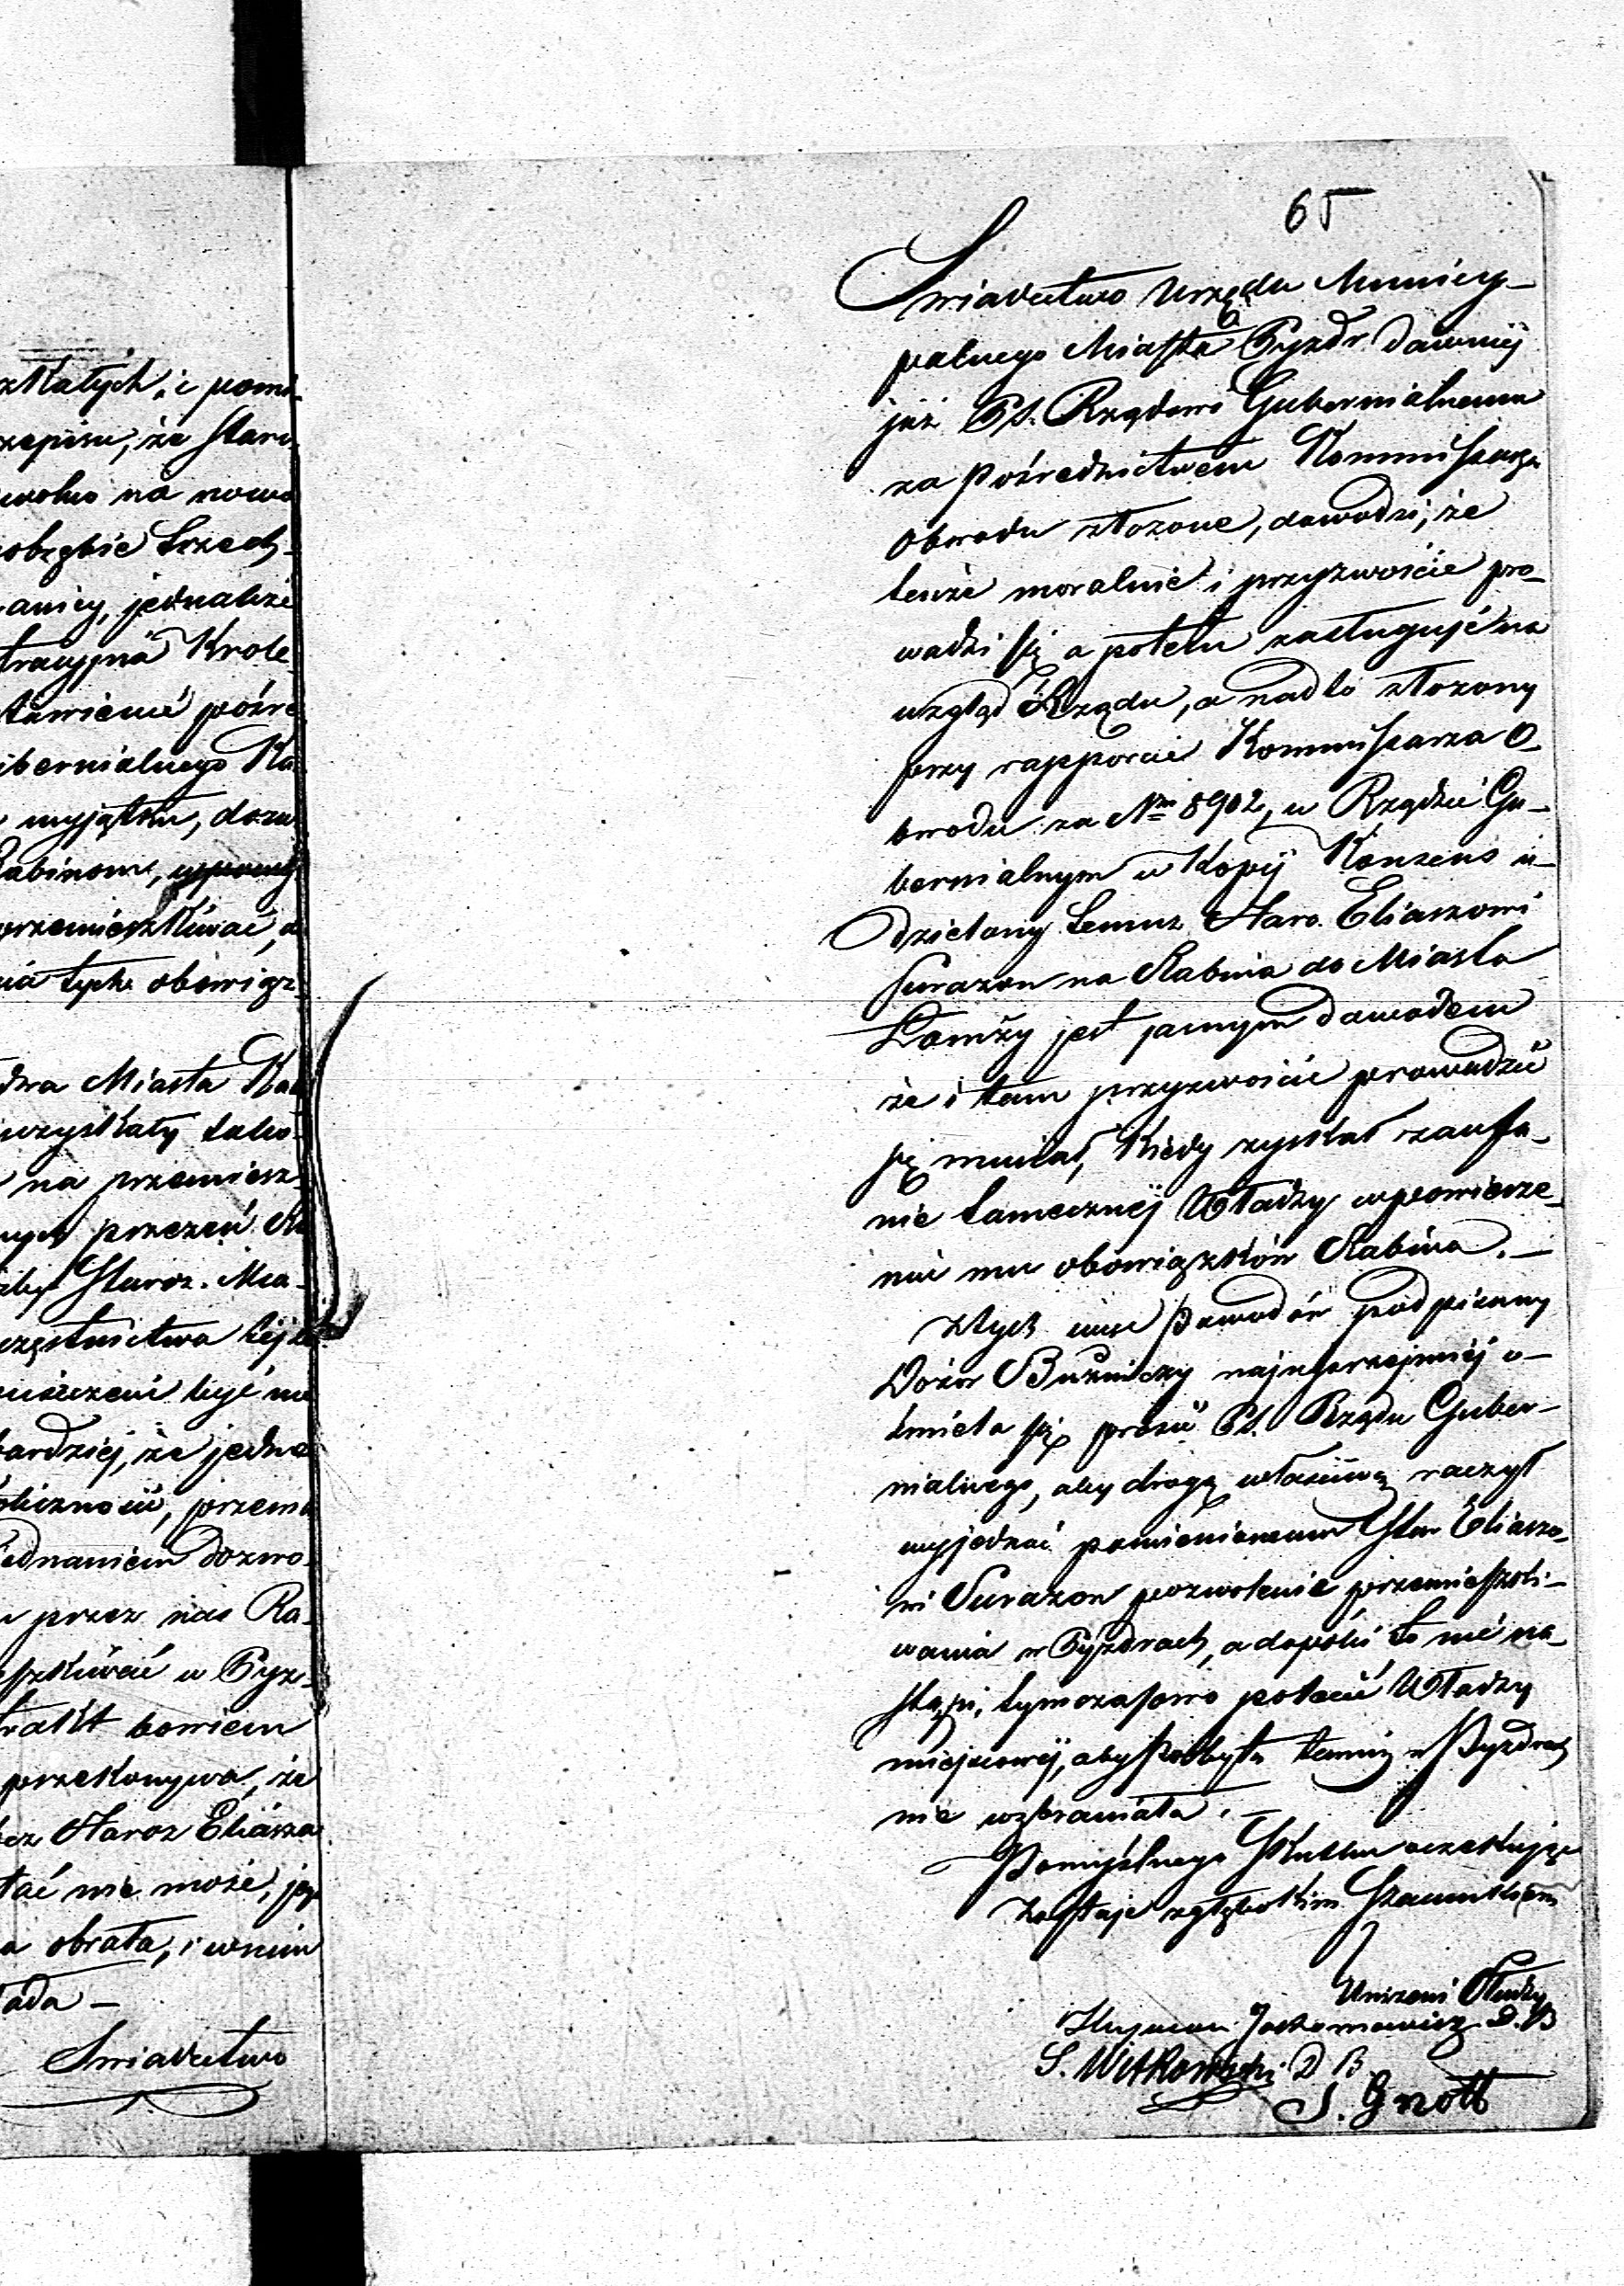 złałych, i pomi-
rzepisu, że Staro
wolno na nowo
obrębie trzech
anicy, jednakże
tracyjna Krole
tawienie pośre
ibernialnego Ka
wyjątku, dozw
Rabinowi,
przemieszkiwać, d
nia tych obowiąz-
dwa Miasta Kal
uzyskały tako-
na przemiesz-
nych przezeń Ra
Staroz. Mia-
częstnictwa tejże
być ma
bardziej, że jedna
oliczność, przema
jednaniem dozwo-
przez nas Ra-
eszkiwać w Pyz-
trakt bowiem
przekonywa, że
bez Staroz Eliasza
tać nie może, jego
a obrała, i w nim
łada —
Swiadectwo
65
Swiadectwo Urzędu Municy-
palnego Miasta Pyzdr dawniej
już Rządowi Gubernialnemu
za Pośrednictwem Kommissarza
Obwodu złożone, dowodzi, że
tenże moralnie i przyzwoicie pro-
wadzi się a potem zasługuje na
wzgląd Rządu, a nadto złożony
przy rapporcie Kommissarza O-
bwodu za Nrm 8902, w Rządzie Gu-
bernialnym w Kopij Konsens u-
dzielony temuż Staro. Eliaszowi
Surazon na Rabina do Miasta
Łomży jest jasnym dowodem
że i tam przyzwoicie prowadzić
się musiał, kiedy zyskał zaufa-
nie tamecznej Władzy w powierze-
niu mu obowiązków Rabina. —
Z tych więc Powodów podpisany
Dozór Bużniczy najuprzejmiej o-
śmiela się prosić Rządu Guber-
nialnego, aby drogą właściwą raczył
wyjednać pomienionemu Star Eliaszo-
wi Surazon pozwolenie przemieszki-
wania w Pyzdrach, a dopóki to nie na-
stąpi, tymczasowo polecić Władzy
miejscowej, aby Pobytu temuż w Pyzdrach
nie wzbraniała. —
Pomyślnego Skutku oczekując
Zostaje z głębokim Szacunkiem
Uniżeni Słudzy
D. B
S. Witkowski D B
S. Gnott